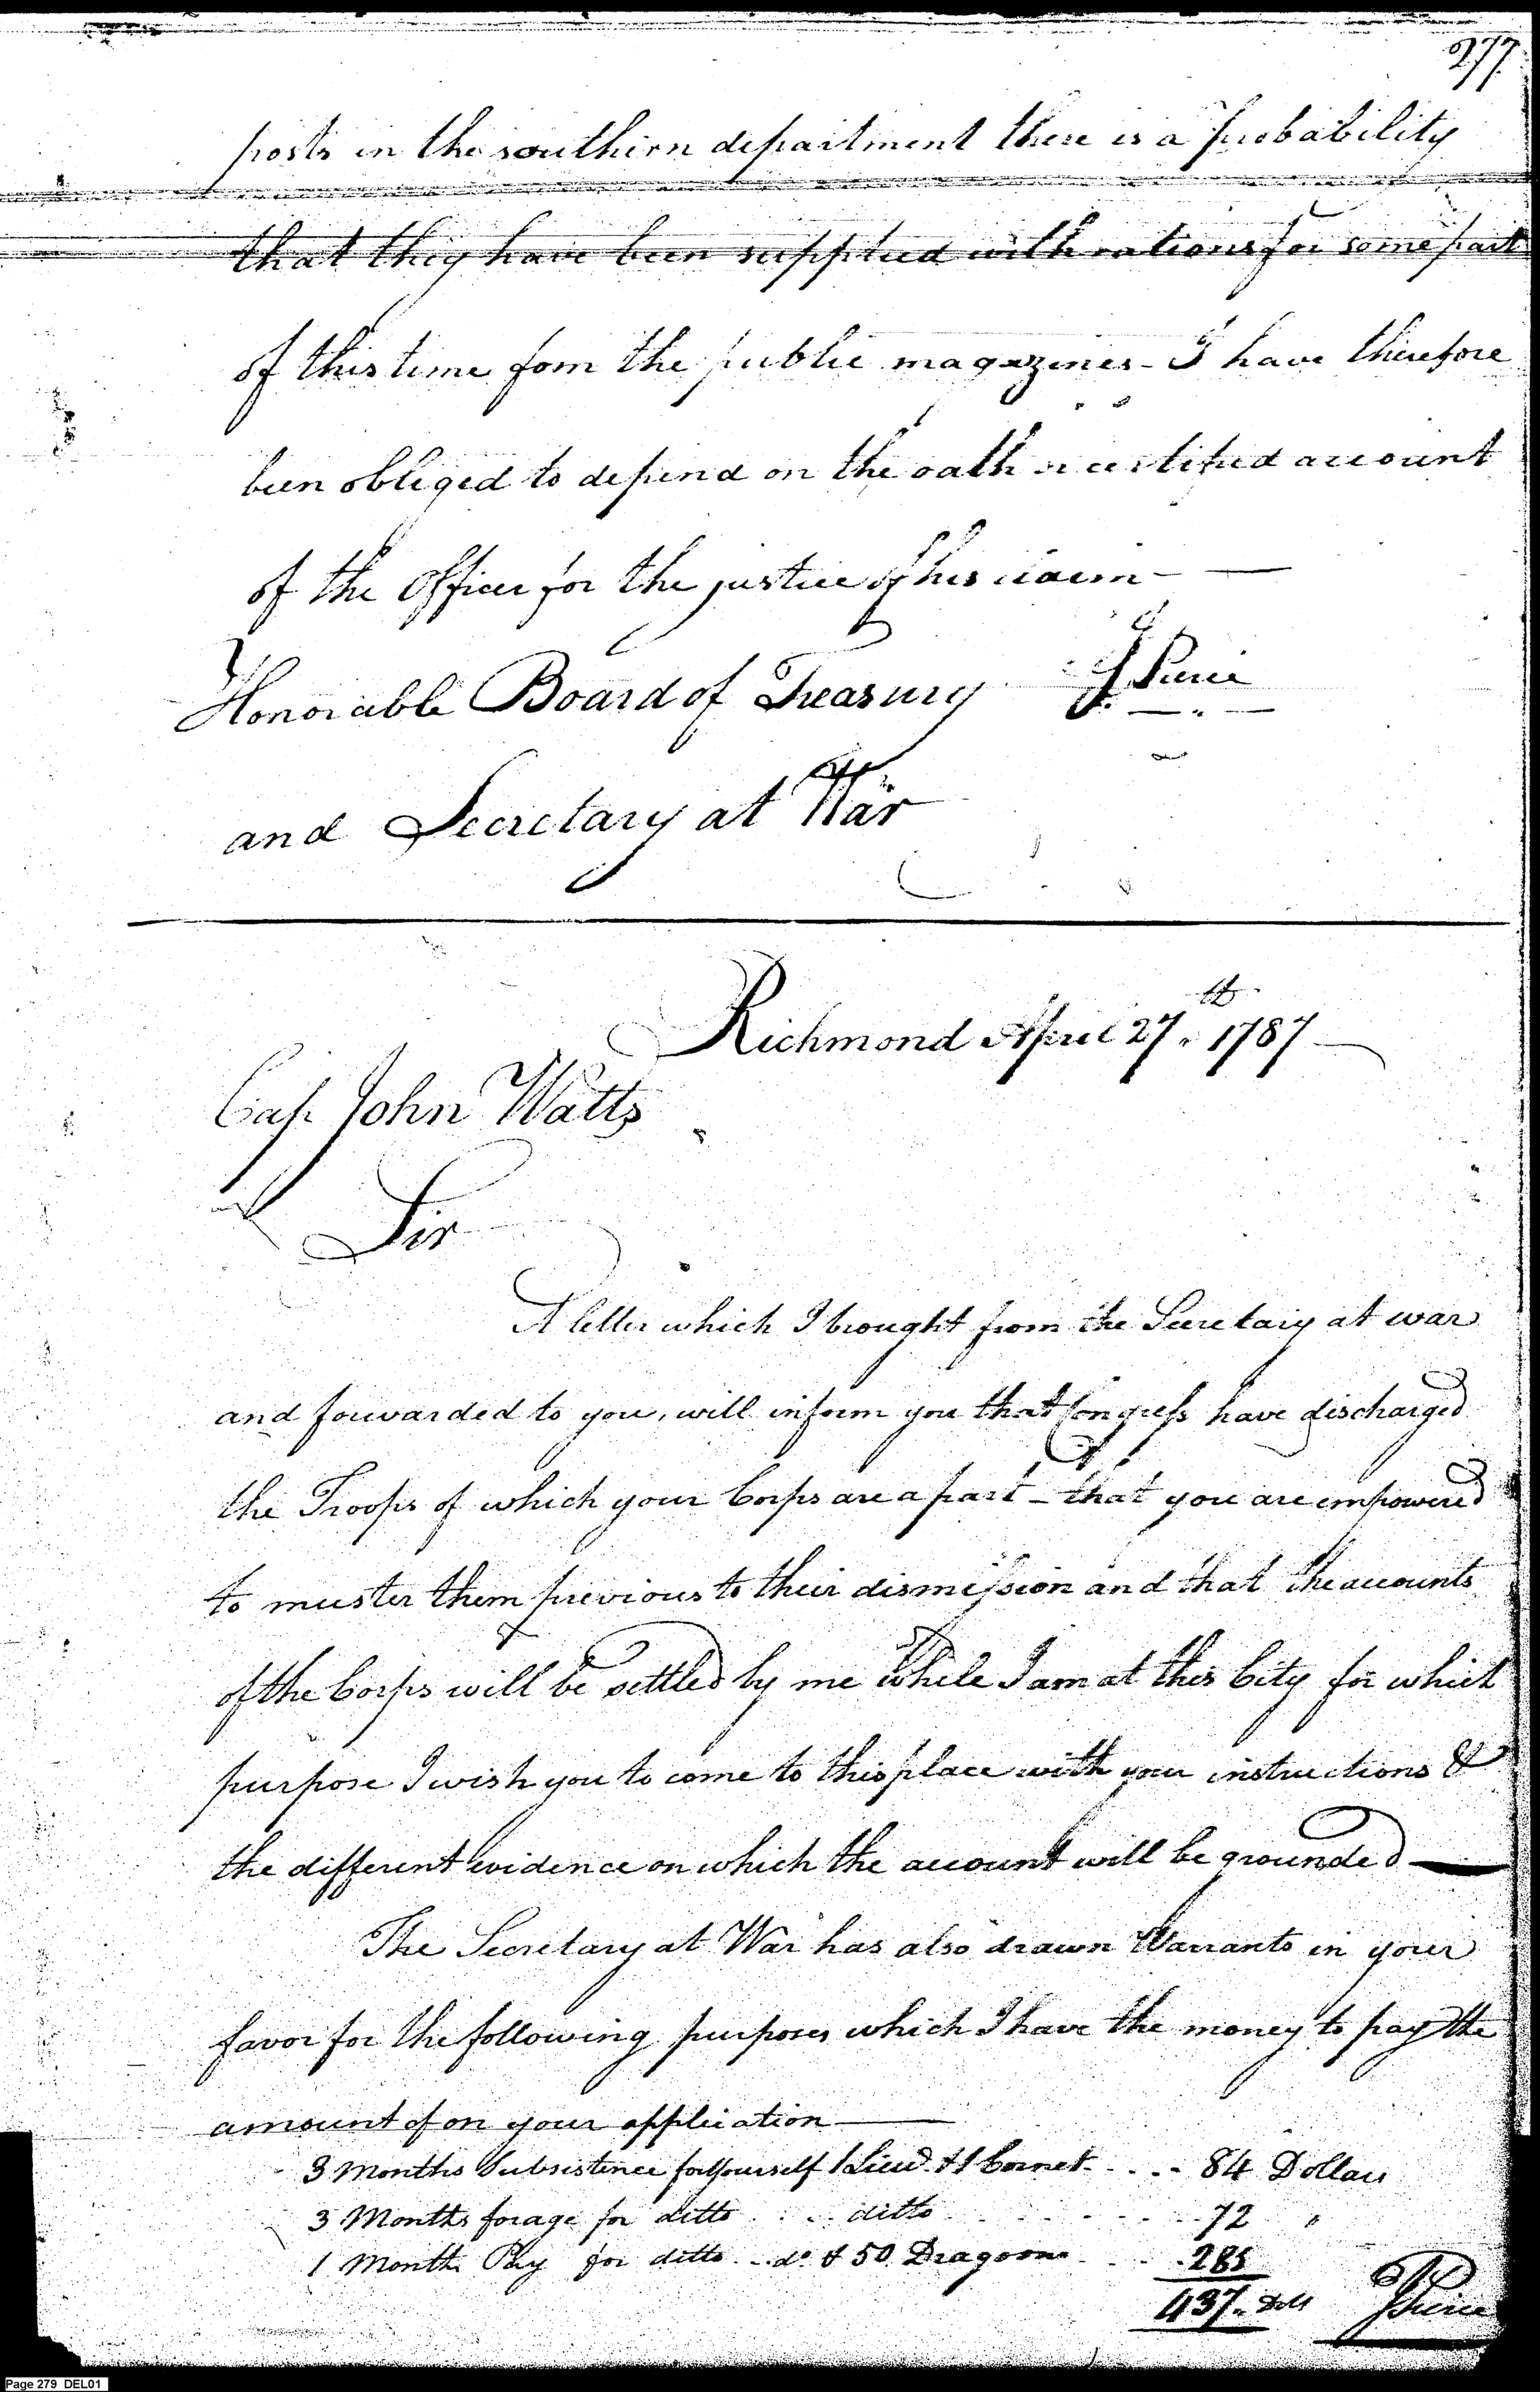 277
posts in the southern department there is a probability
that they have been supplied with rations for some part
of this time fom the public magazines - I have therefore
been obliged to depend on the oath or certified account
of the Officer for the justice of his claim -
Honorable Board of Treasury J Pierce
and Secretary at War
Richmond April 27th 1787
Cap John Watts
Sir
A letter which I brought from the Secretary at war
and forwarded to you, will inform you that Congress have discharged
the Troops of which your Corps are a part - that you are empowered
to muster them previous to their dismission and that the accounts
of the Corps will be settled by me while I am at this City for which
purpose I wish you to come to this place with your instructions &
the different evidence on which the account will be grounded
The Secretary at War has also drawn Warrants in your
favor for the following purposes which I have the money to pay the
amount of on your application
3 Months Subsistence for Yourself 1 Lieut. & 1 Cornet . . . . 84 Dollars
3 Months forage for ditto . . . ditto . . . . . . 72 "
1 Month Pay for ditto . . do & 50 Dragoons . . . 285
437 . Dolls J Pierce
Page 279 DEL01